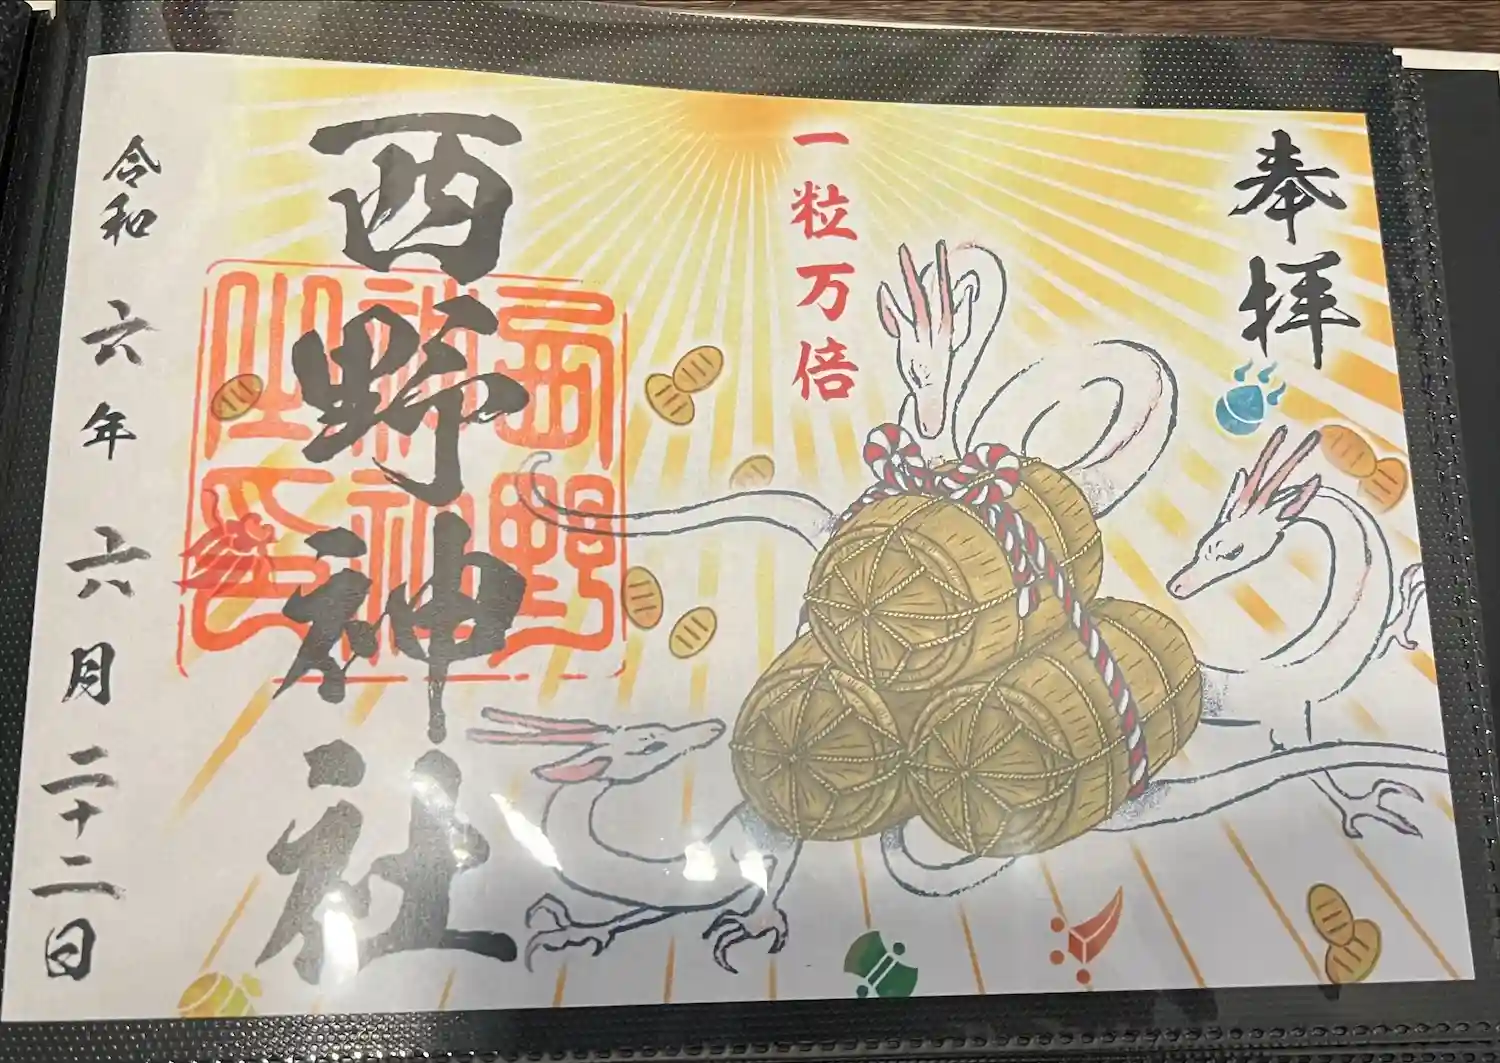 奉拝
一粒万倍
西野神社
西野
神社
之印
令和六年六月二十二日